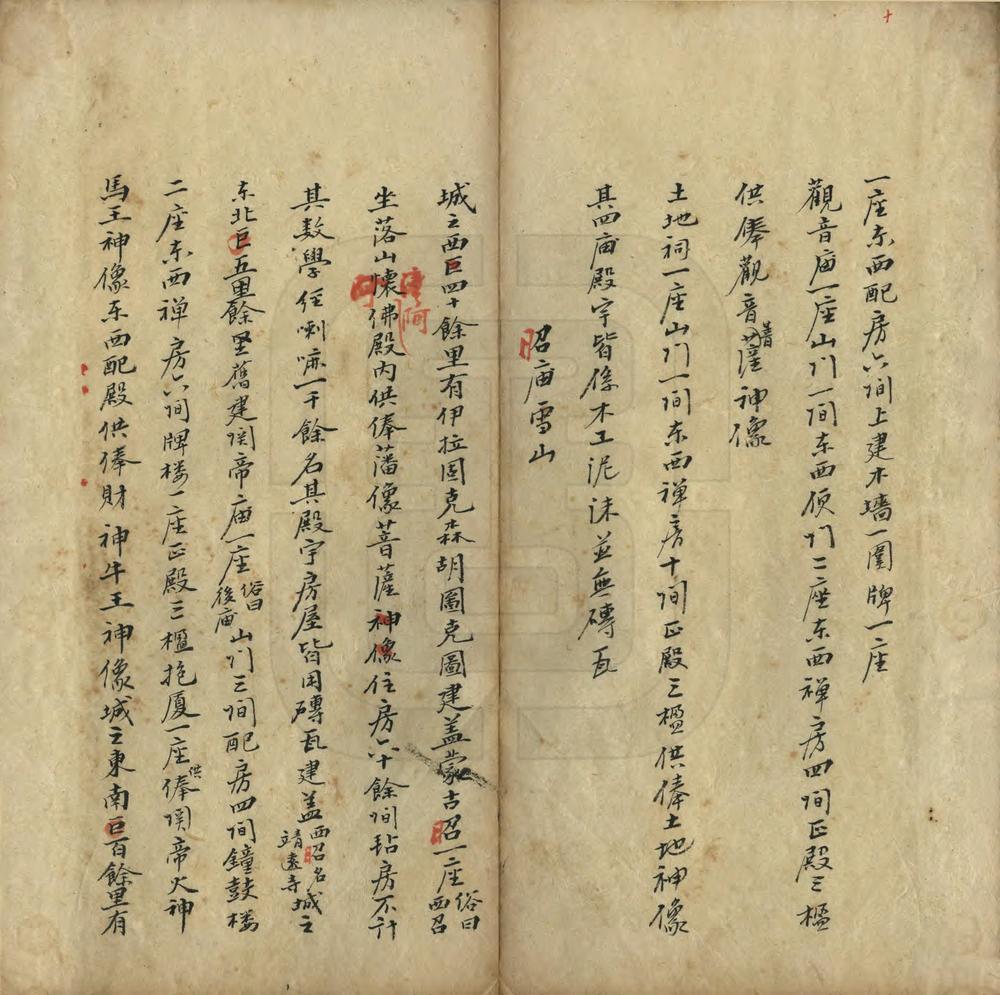 一座东西配房六间上建木墙一圍牌一座
觀音庙一座山门一间东西便门二座东西禅房四间正殿三楹
供俸觀音菩薩神像
土地祠一座山门一间东西禅房十间正殿三楹供俸土地神像
其四庙殿宇皆係木工泥沫並無磚瓦
昭庙雪山
城之西巨四十餘里有伊拉固克森胡圖克圖建盖蒙古昭一座俗曰西召
坐落山懷佛殿内供俸藩像菩薩神像住房六十餘间毡房不计
阿
其数學经喇嘛一千餘名其殿宇房屋皆用磚瓦建盖西昭名靖遠寺城之
东北巨五里餘里舊建関帝庙一座俗曰後庙山门三间配房四间鐘鼓楼
二座东西禅房六间牌楼一座正殿三楹抱厦一座供俸関帝火神
馬王神像东西配殿供俸財神牛王神像城之東南巨百餘里有